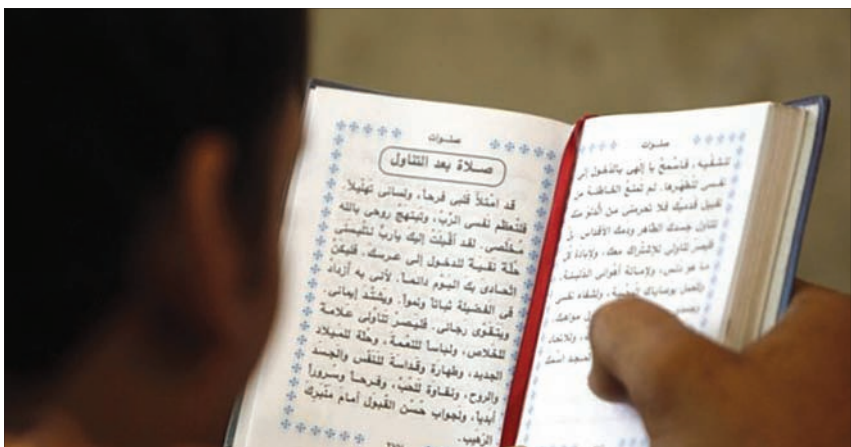 صلوات
للشفيه، فاسمح يا إلهى بالدخول إلى
نفسى لتطهرها. لم تمنع الخاطئة من
تقبيل قدميك فلا تحرمنى من الدنو منك
لتناول جسدك الطاهر ودمك الأقدس. بل
فليصر تناولى للإشتراك معك، ولإبادة كل
ما هو دنس، ولإماتة أهوائى
وللعمل بوصاياك، ولشفاء نفسى
مواهبك
صلوات
صلاة بعد التناول
قد امتلأ قلبى فرحاً، ولسانى تهليلاً.
فلتعظم نفسى الرَّبَّ، وتبتهج روحى بالله
مُخلّصى. لقد أقبلت إليك ياربُّ لتلبسنى
حُلّة نقية للدخول إلى عرسك. فليكن
اتحادى بك اليوم دائماً. لأنى به أزداد
فى الفضيلة ثباتاً ونمواً. ويشتد إيمانى.
ويتقوى رجائى. فليصر تناولى علامة
للخلاص، ولباساً للنعمة، وحلة للميلاد
الجديد، وطهارة وقداسة للنفس والجسد
والروح، ونقاوة للحب، وفرحاً وسروراً
أبدياً، ولجواب حسن القبول أمام منبرك
الرهيب.